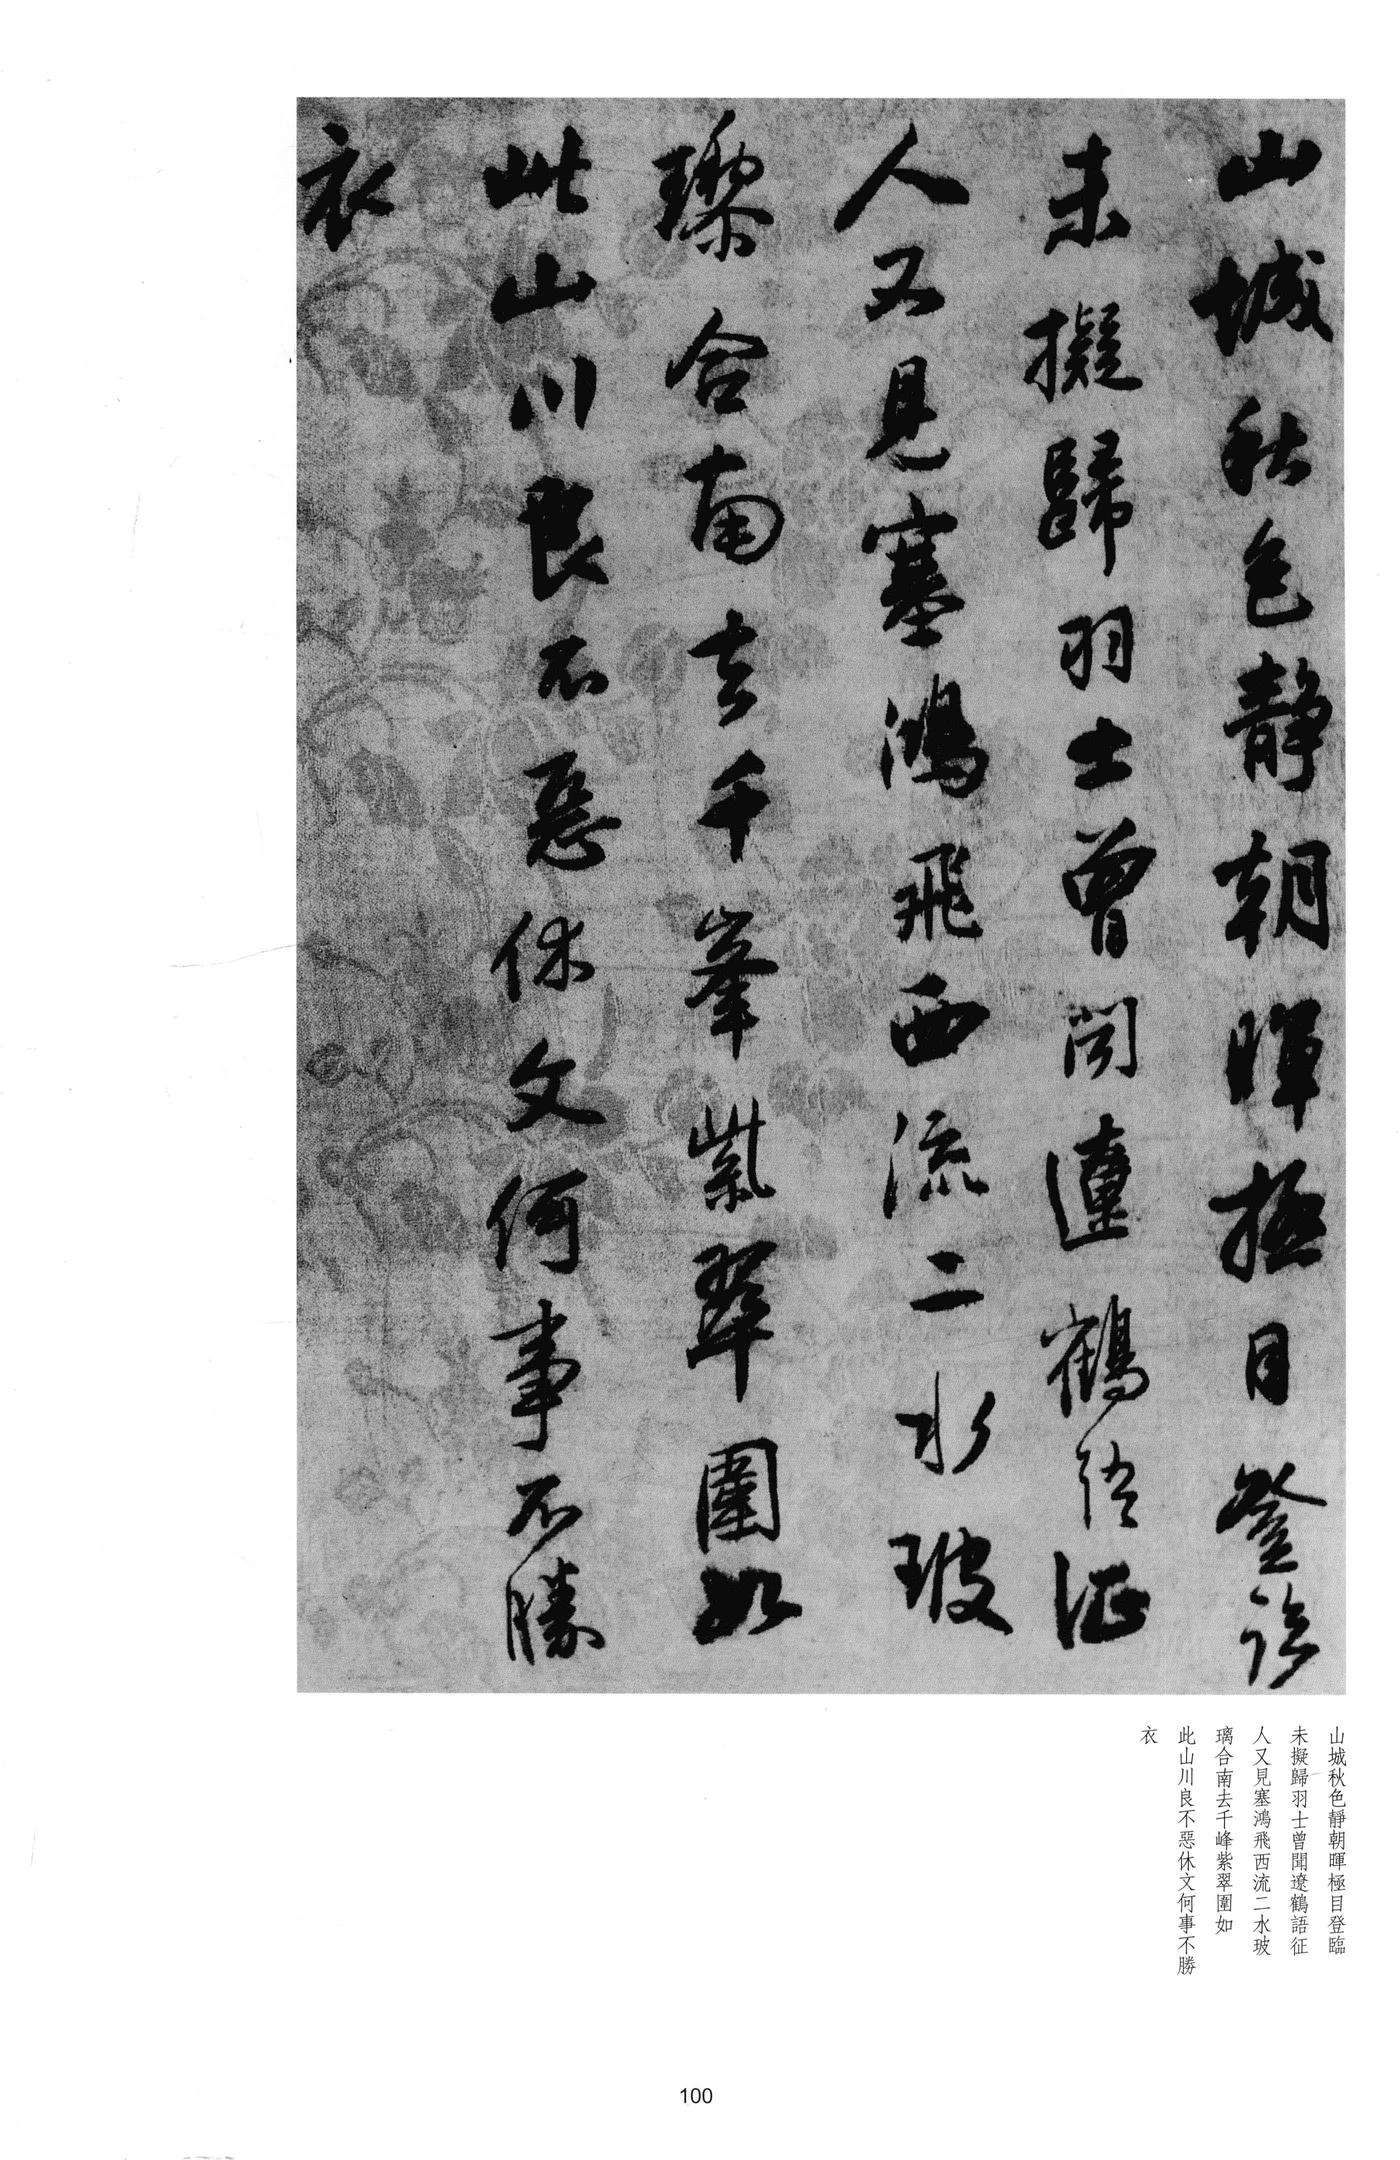 山城秋色靜朝暉極目登臨
未擬歸羽士曾聞遼鶴語征
人又見塞鴻飛西流二水玻
瓈合南去千峯紫翠圍如
此山川良不惡休文何事不勝
衣
山城秋色靜朝暉極目登臨
未擬歸羽士曾聞遼鶴語征
人又見塞鴻飛西流二水玻
璃合南去千峰紫翠圍如
此山川良不惡休文何事不勝
衣
100